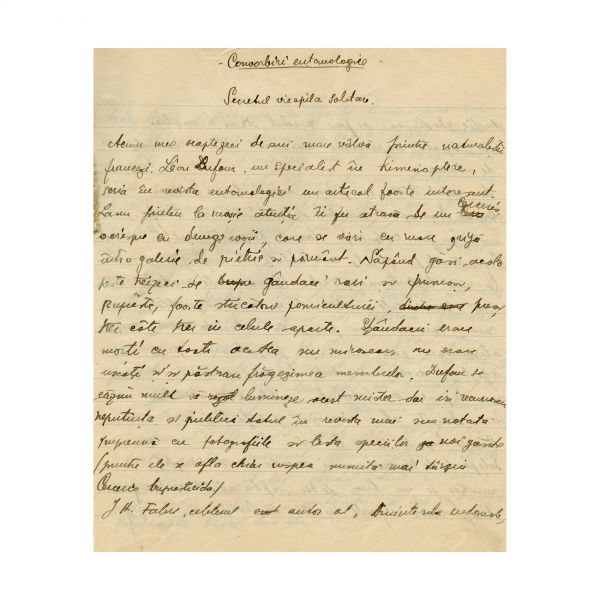 - Convorbiri entomologice -
Secretul viespilor solitare.
Acum mea șaptezeci de ani mare vâlvă printre naturaliști
francezi. Léon Dufour, un specialist în himenoptere,
scria în revista entomologică un articol foarte interesant.
La un prieten la moșie atenția îi fu atrasă de un Cerceris
viespe cu dungi roșii, care se vâri cu mare grijă
într'o galerie de pietriș și pământ. Săpând găsi acolo
peste treizeci de gândaci rari și frumoși,
Bupreste, foarte stricători pomiculturei, puși
trei câte trei în celule aparte. Gândacii erau
morți cu toate acestea nu miroseau, nu erau
uscați și-și păstrau frăgezimea membrelor. Dufour se
căzni mult a lumineze acest mister dar își recunoscu
neputința și publică totul în revista mai sus notată
împreună cu fotografiile și lista speciilor noi găsite
(printre ele se afla chiar viespea numită mai târziu
Cerceris bupresticida)
J. H. Fabre, celebrul autor al, Amintirilor entomolo,